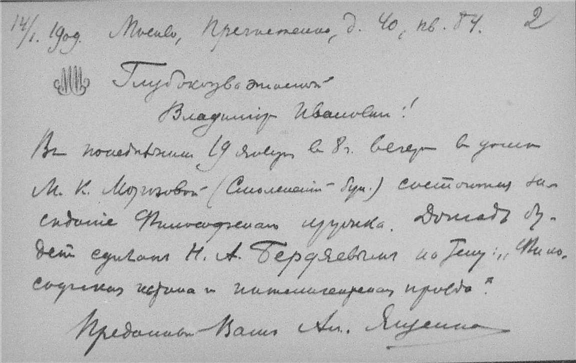 14/I. 1909. Москва, Пречистенка, д. 40, кв. 84. 2
Глубокоуважаемый
Владимир Иванович!
В понедельник 19 января в 8 ч. вечера в доме
М. К. Морозовой (Смоленский бул.) состоится за-
седание Философского кружка. Доклад бу-
дет сделан Н. А. Бердяевым на тему: „Фило-
софская истина и интеллигентская правда“.
Преданный Вам Ал. Ященко